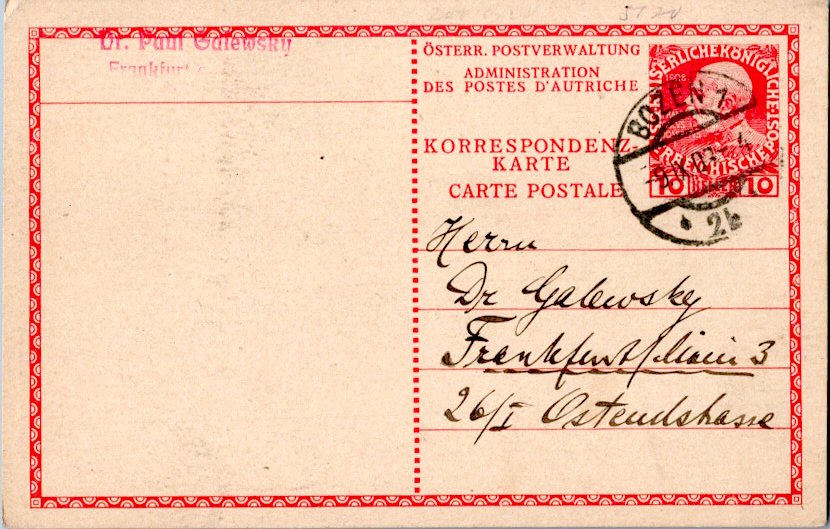 Dr. Paul Galewsky
Frankfurt
ÖSTERR. POSTVERWALTUNG
ADMINISTRATION
DES POSTES D'AUTRICHE
KORRESPONDENZ-
KARTE
CARTE POSTALE
1908
10 10
BOZEN 1
2b
Herrn
Dr Galewsky
Frankfurt/Main 3
26/I Ostendstrasse